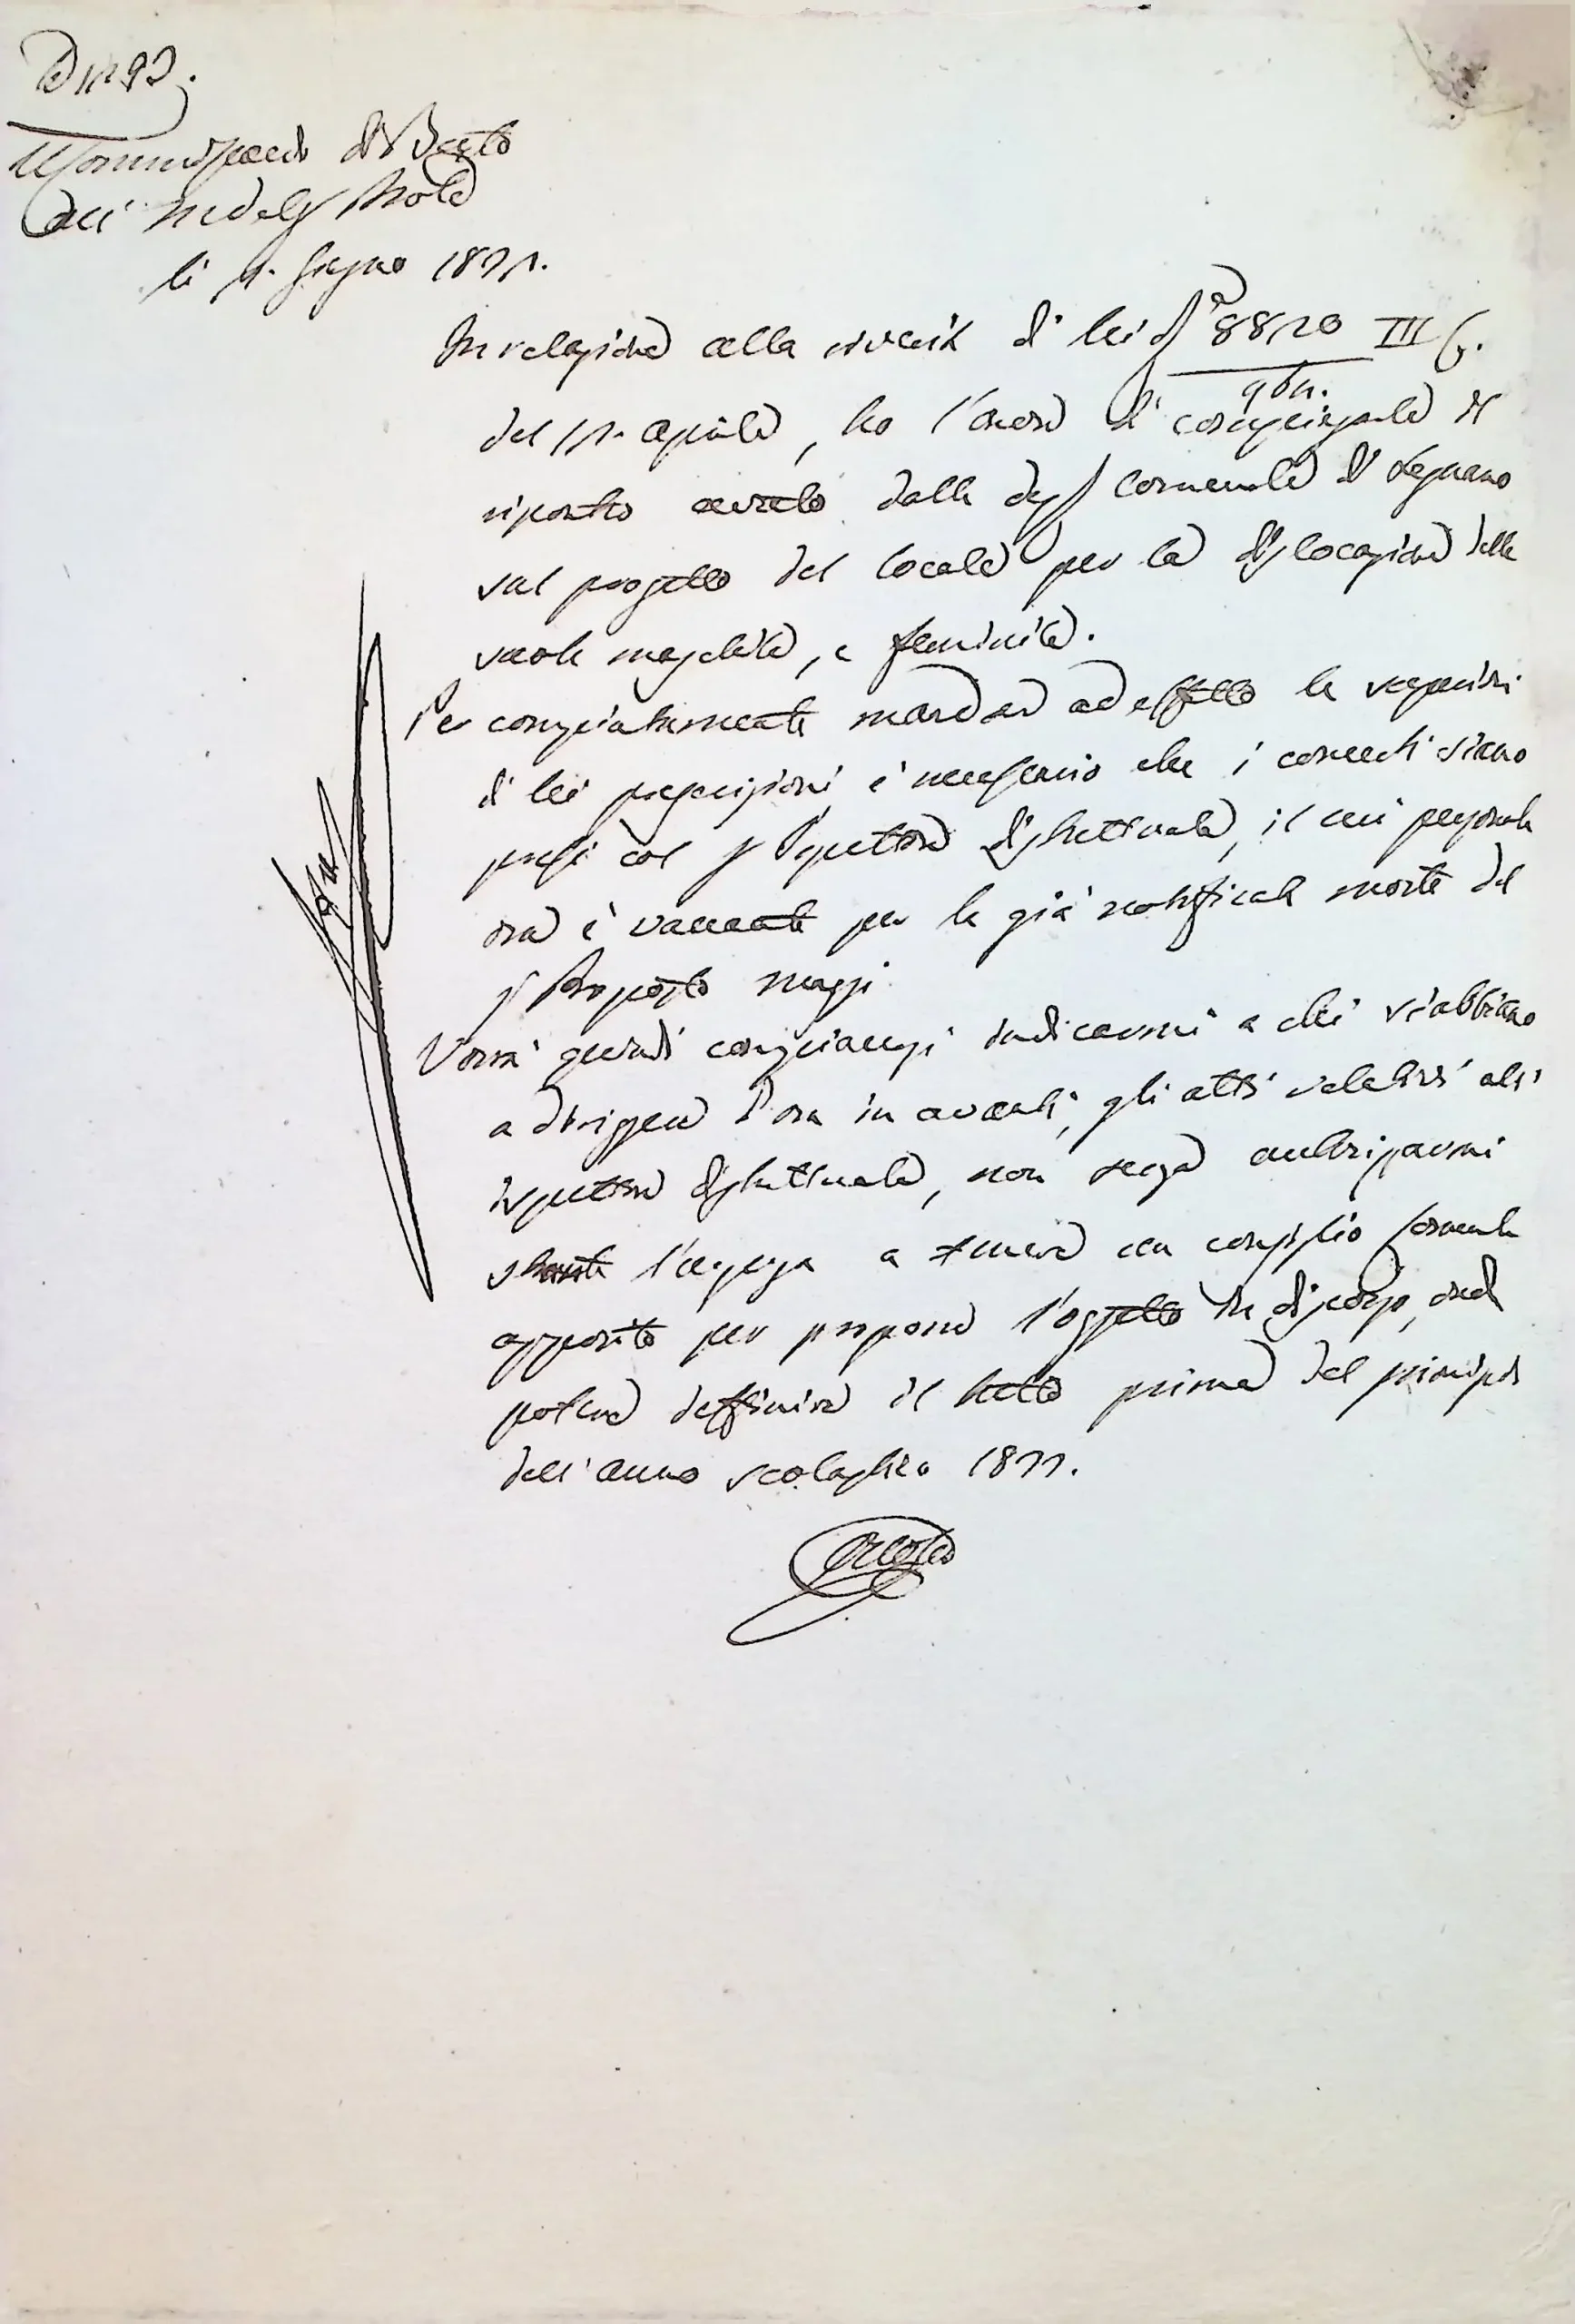 Commissario di Busto
li 1. Giugno 1855.
In relazione alla riverita di lei
del 15. Aprile, ho l'onore di compiegarle il
riportto avuto dalla Dep Comunale di Legnano
sul progetto del locale per la dislocazione delle
scuole maschile, e feminile.
Per compiutamente mandare ad effetto le
di lei prescrizioni, è necessario che i concerti siano
presi col Ispettore distrettuale, il cui personale
ora è vaccante per la già notificata morte del
Proposto Maggi.
Vorrà quindi compiacersi indicarmi a chi si abbiano
a dirigere d'ora in avanti, gli atti relativi all'
ispettore distrettuale, non senza autorizzarmi
stante l'urgenza a tenere un consiglio comunale
apposito per proporre l'oggetto in discorso, onde
potere deffinire il tutto prima del principio
dell'anno scolastico 1855.